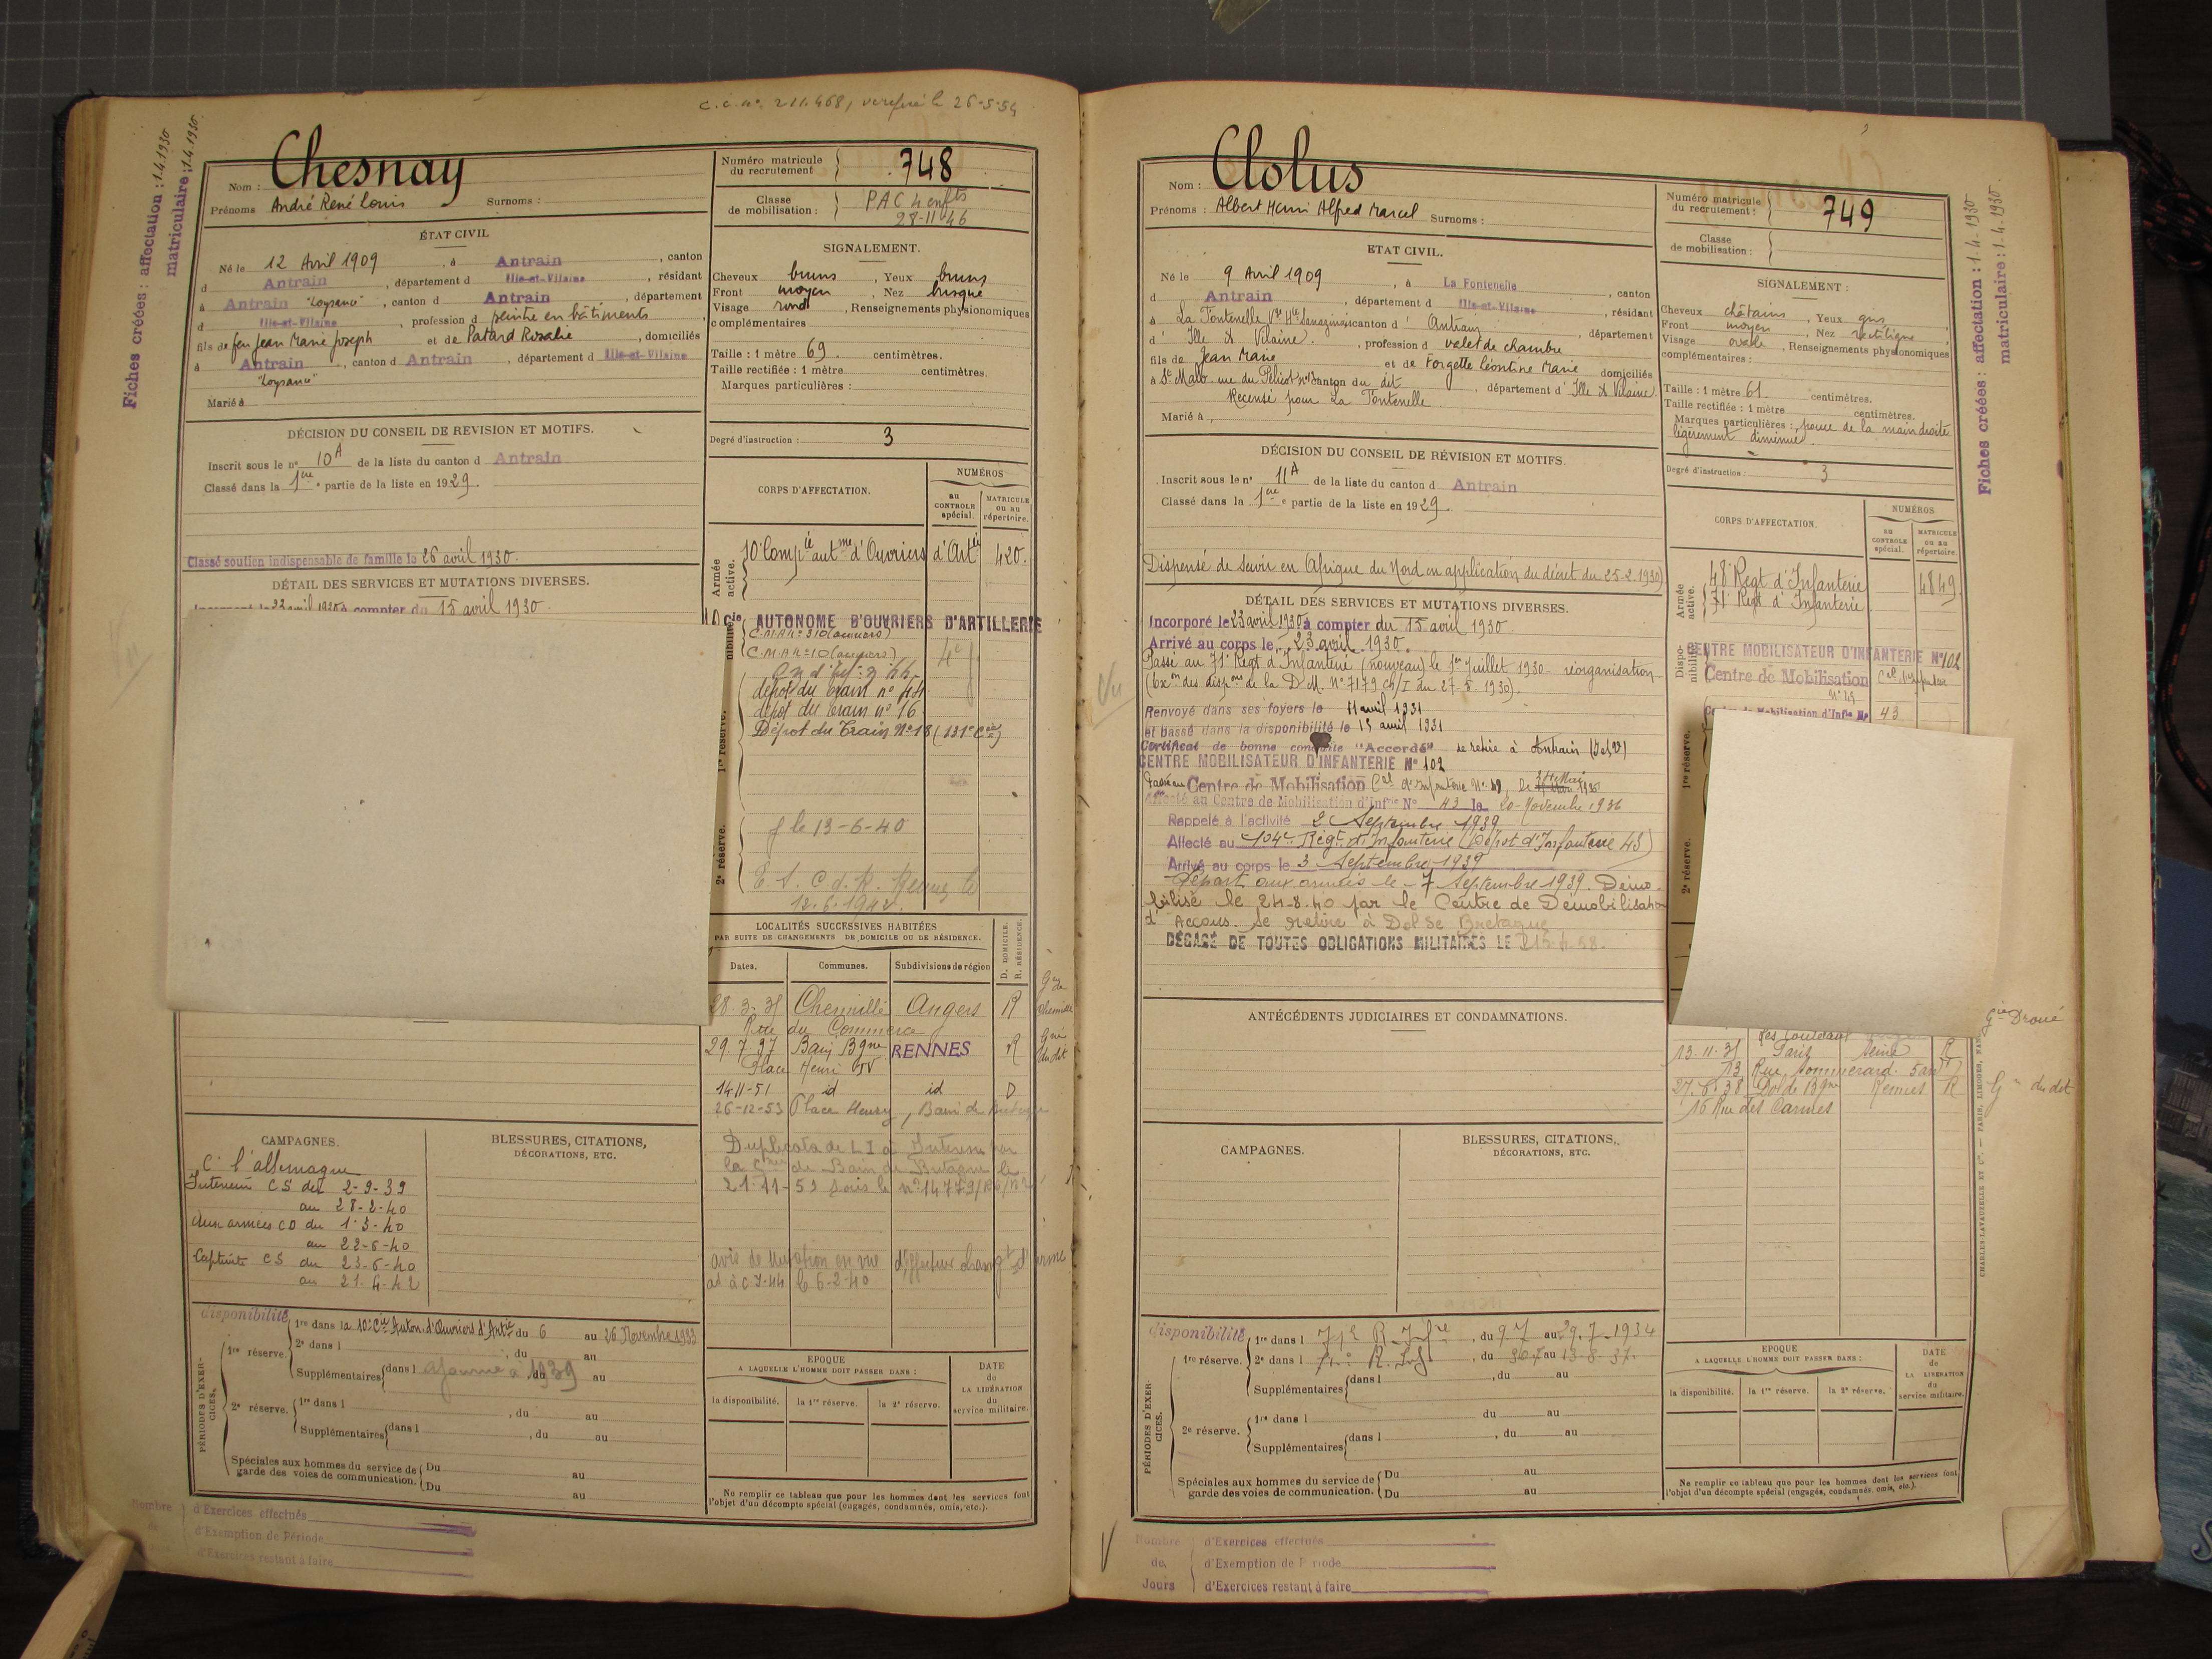 C.C. n° 211.468, vérifié le 26-5-54
Fiches créées : affectation : 1.4.1930
matriculaire : 1.4.1930
Nom : Chesnay
Prénoms André René Louis Surnoms :
Numéro matricule du recrutement 748
Classe de mobilisation : PAC 4 enfts
28-11-46
ÉTAT CIVIL
Né le 12 Avril 1909, à Antrain, canton
d Antrain, département d Ille-et-Vilaine, résidant
à Antrain, canton d Antrain, département
d Ille-et-Vilaine, profession d peintre en bâtiments
fils de feu Jean Marie Joseph et de Patard Rosalie, domiciliés
à Antrain, canton d Antrain, département d Ille-et-Vilaine
Marié à
SIGNALEMENT.
Cheveux bruns, Yeux bruns
Front moyen, Nez busqué
Visage rond, Renseignements physionomiques
complémentaires
Taille : 1 mètre 69 centimètres.
Taille rectifiée : 1 mètre centimètres.
Marques particulières :
Degré d'instruction : 3
DÉCISION DU CONSEIL DE REVISION ET MOTIFS.
Inscrit sous le n° 10A de la liste du canton d Antrain
Classé dans la 1ère partie de la liste en 1929.
Classé soutien indispensable de famille le 26 avril 1930.
DÉTAIL DES SERVICES ET MUTATIONS DIVERSES.
à compter du 15 avril 1930
CORPS D'AFFECTATION.
NUMÉROS
au CONTROLE spécial.
MATRICULE ou au répertoire.
Armée active.
10e Compie autme d'Ouvriers d'Artie 420.
10 Cie AUTONOME D'OUVRIERS D'ARTILLERIE
C.M.A. n° 10 (ouvriers)
dépôt du train n° 44
dépôt du train n° 16
Dépôt du Train N° 18 (131e Cie)
1re réserve.
2e réserve.
le 13-6-40
LOCALITÉS SUCCESSIVES HABITÉES
PAR SUITE DE CHANGEMENTS DE DOMICILE OU DE RÉSIDENCE.
D. DOMICILE. R. RÉSIDENCE.
Dates. Communes. Subdivisions de région
Chemillé Angers R
Rue du Commerce
29.7.37 Bain Bgne RENNES R
Place Henri IV
14-11-51 id id D
26-12-53 Place Henry, Bain de Bretagne
CAMPAGNES.
BLESSURES, CITATIONS,
DÉCORATIONS, ETC.
C. l'allemagne
Intérieur CS du 2-9-39
au 28-2-40
Aux armées CD du 1-3-40
au 22-6-40
Captivité CS du 23-6-40
au 21-4-42
PÉRIODES D'EXERCICES.
disponibilité
1re réserve. 1re dans la 10e Cie Auton. d'Ouvriers d'Artie du 6 au 26 Novembre 1933
2e dans l, du au
Supplémentaires dans l Ajourné à 1939 au
2e réserve. 1re dans l, du au
Supplémentaires dans l, du au
Spéciales aux hommes du service de garde des voies de communication. Du au
Du au
EPOQUE
A LAQUELLE L'HOMME DOIT PASSER DANS :
la disponibilité. la 1re réserve. la 2e réserve.
DATE de LA LIBÉRATION du service militaire.
Ne remplir ce tableau que pour les hommes dont les services font
l'objet d'un décompte spécial (engagés, condamnés, omis, etc.).
Nombre
d'Exercices effectués
d'Exemption de Période
d'Exercices restant à faire
Nom : Clolus
Prénoms : Albert Henri Alfred Marcel Surnoms :
Numéro matricule du recrutement : 749
Classe de mobilisation :
Fiches créées : affectation : 1-4-1930
matriculaire : 1-4-1930
ETAT CIVIL.
Né le 9 Avril 1909, à La Fontenelle, canton
d Antrain, département d Ille-et-Vilaine, résidant
à La Fontenelle canton d' Antrain, département
d' Ille & Vilaine, profession d valet de chambre
fils de Jean Marie et de Forgette Léontine Marie domiciliés
à St Malo rue du Pélicot canton du dit, département d' Ille & Vilaine
Recensé pour La Fontenelle
Marié à
SIGNALEMENT :
Cheveux châtains, Yeux gris
Front moyen, Nez rectiligne
Visage ovale, Renseignements physionomiques
complémentaires :
Taille : 1 mètre 61 centimètres.
Taille rectifiée : 1 mètre centimètres.
Marques particulières : pouce de la main droite
légèrement diminué.
Degré d'instruction : 3
DÉCISION DU CONSEIL DE RÉVISION ET MOTIFS.
Inscrit sous le n° 11A de la liste du canton d Antrain
Classé dans la 1ère partie de la liste en 1929.
Dispensé de servir en Afrique du Nord en application du décret du 25-2-1930)
DÉTAIL DES SERVICES ET MUTATIONS DIVERSES.
Incorporé le 23 avril 1930 à compter du 15 avril 1930
Arrivé au corps le 23 avril 1930.
Passé au 71e Régt d'Infanterie (nouveau) le 1er Juillet 1930 réorganisation
(Exon des dispons de la D.M. N° 7179 Ch/I du 27-5-1930).
Renvoyé dans ses foyers le 11 avril 1931
et passé dans la disponibilité le 15 avril 1931
Certificat de bonne conduite "Accordé" se retire à Antrain (I et V)
CENTRE MOBILISATEUR D'INFANTERIE N° 102
Centre de Mobilisation
Affecté au Centre de Mobilisation d'Infrie N° 43 le 20 Novembre 1936
Rappelé à l'activité 2 Septembre 1939
Affecté au 104e Régt d'Infanterie (Dépôt d'Infanterie 43)
Arrivé au corps le 3 Septembre 1939
Départ aux armées le 7 Septembre 1939. Démo-
bilisé le 24-8-40 par le Centre de Démobilisation
d' Accous. Se retire à Dol de Bretagne
DÉGAGÉ DE TOUTES OBLIGATIONS MILITAIRES LE
CORPS D'AFFECTATION.
NUMÉROS
au CONTROLE spécial.
MATRICULE ou au répertoire.
Armée active.
48e Régt d'Infanterie 4849
71e Régt d'Infanterie
Disponibilité
CENTRE MOBILISATEUR D'INFANTERIE N° 102
Centre de Mobilisation
43
1re réserve.
2e réserve.
Gie Droué
13-11-35 Paris Seine R
27.6.38 Dol de Bgne Rennes R Gie du dit
16 Rue des Carmes
ANTÉCÉDENTS JUDICIAIRES ET CONDAMNATIONS.
CAMPAGNES.
BLESSURES, CITATIONS,
DÉCORATIONS, ETC.
PÉRIODES D'EXERCICES.
disponibilité
1re réserve. 1re dans l 71e R. Infie, du 9 7 au 29.7.1934
2e dans l, du au 13-8-37.
Supplémentaires dans l, du au
2e réserve. 1re dans l du au
Supplémentaires dans l, du au
Spéciales aux hommes du service de garde des voies de communication. Du au
Du au
EPOQUE
A LAQUELLE L'HOMME DOIT PASSER DANS :
la disponibilité. la 1re réserve. la 2e réserve.
DATE de LA LIBÉRATION du service militaire.
Ne remplir ce tableau que pour les hommes dont les services font
l'objet d'un décompte spécial (engagés, condamnés, omis, etc.).
Nombre de Jours
d'Exercices effectués
d'Exemption de Période
d'Exercices restant à faire